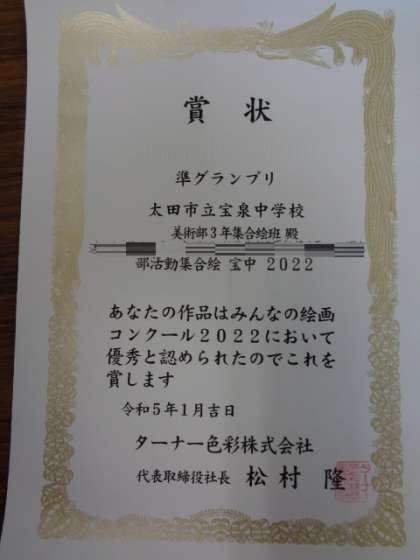 賞状
準グランプリ
太田市立宝泉中学校
美術部3年集合絵班 殿
部活動集合絵 宝中 2022
あなたの作品はみんなの絵画
コンクール2022において
優秀と認められたのでこれを
賞します
令和5年1月吉日
ターナー色彩株式会社
代表取締役社長 松村 隆